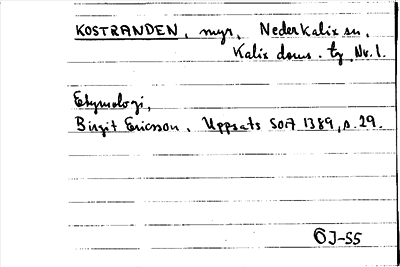 KOSTRANDEN, myr, Nederkalix sn,
Kalix doms. tg Nr. 1.
Etymologi,
Birgit Ericsson, Uppsats SOFI 1389, s. 29.
ÖJ-55